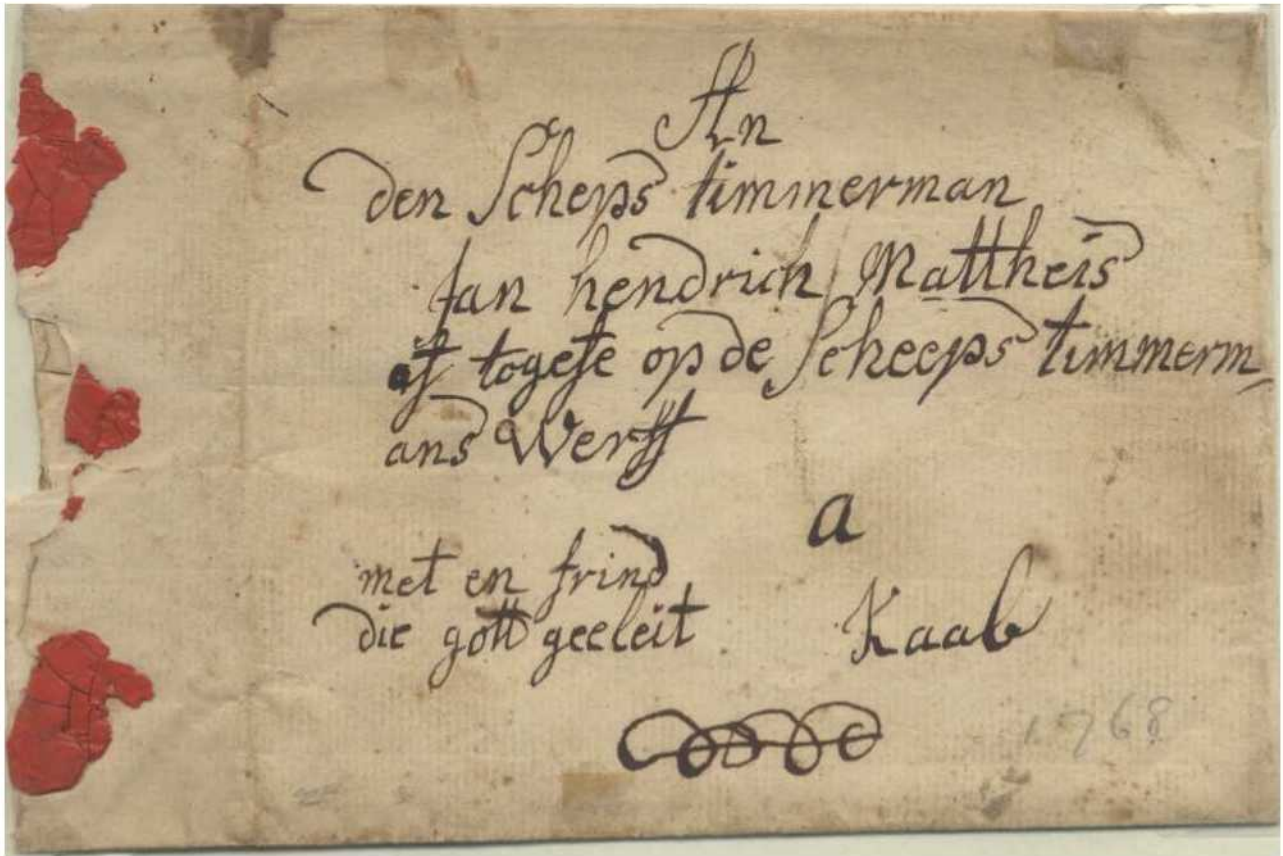 An
den Scheps timmerman
Jan hendrich Mattheis
af togefe op de Scheeps timmerm
ans Werff
a
met en frind
die gott geeleit
Kaab
1768